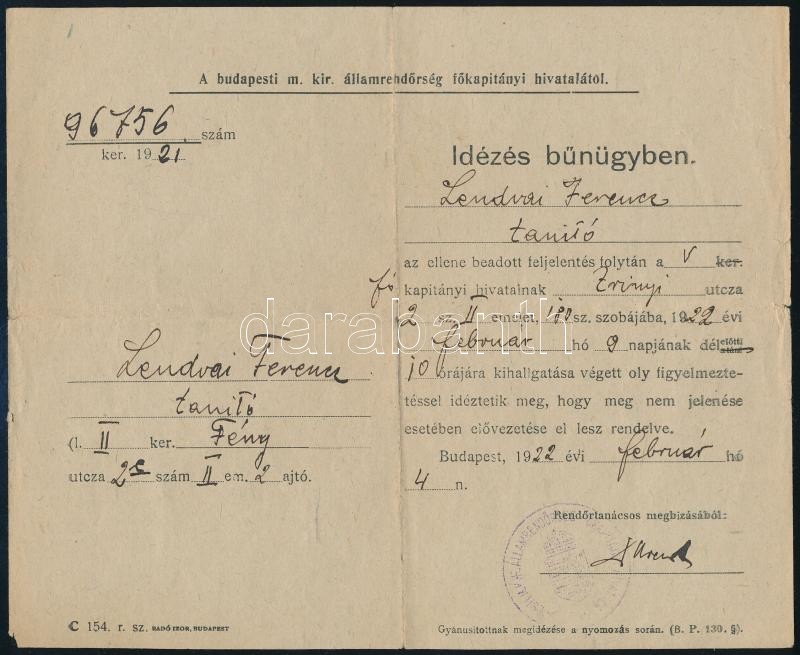 A budapesti m. kir. államrendőrség főkapitányi hivatalától.
96756 szám
ker. 1921
Idézés bűnügyben.
Lendvai Ferencz
tanító
az ellene beadott feljelentés folytán a V ker.
fő kapitányi hivatalnak Zrinyi utcza
2 sz. II emelet, 180 sz. szobájába, 1922 évi
február hó 9 napjának délelőtti
10 órájára kihallgatása végett oly figyelmezte-
téssel idéztetik meg, hogy meg nem jelenése
esetében elővezetése el lesz rendelve.
Budapest, 1922 évi február hó
4 n.
Rendőrtanácsos megbizásából:
Lendvai Ferencz
tanító
(l. II ker. Fény
utcza 2 szám II em. 2 ajtó.
C 154. r. sz. RADÓ IZOR, BUDAPEST
Gyanusitottnak megidézése a nyomozás során. (B. P. 130. §).
darabanth